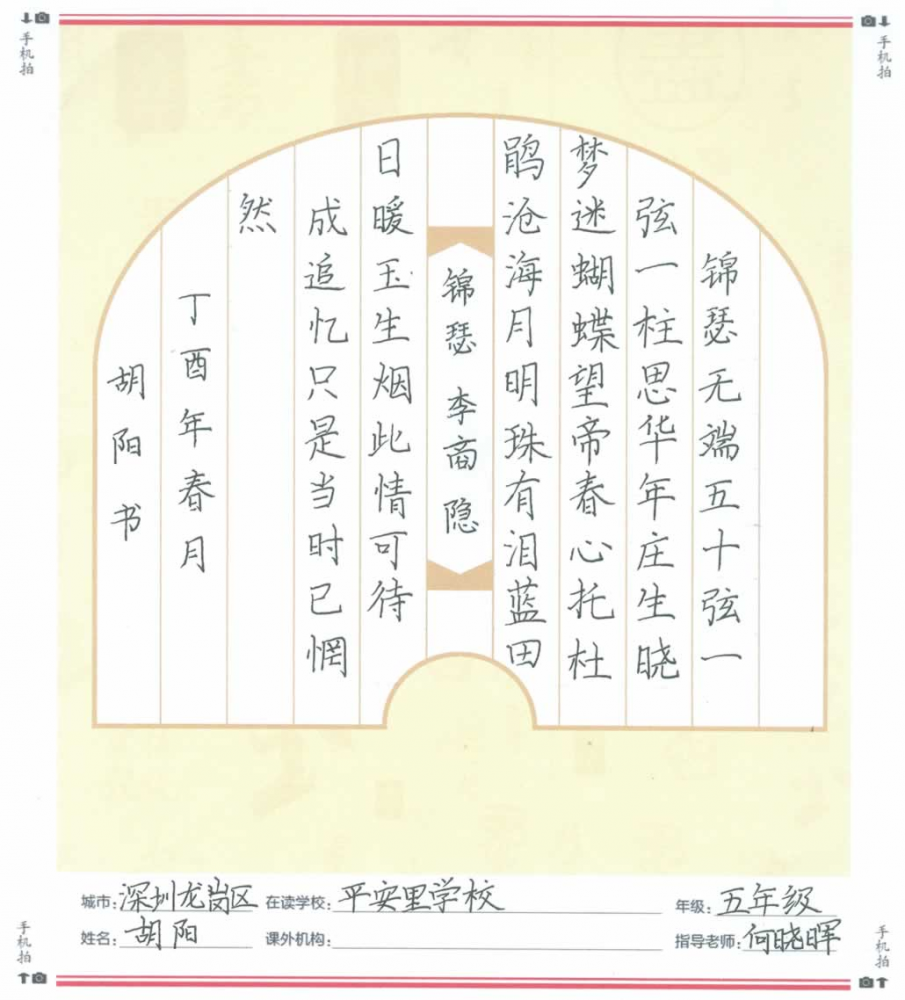 手机拍
手机拍
锦瑟无端五十弦一
弦一柱思华年庄生晓
梦迷蝴蝶望帝春心托杜
鹃沧海月明珠有泪蓝田
锦瑟 李商隐
日暖玉生烟此情可待
成追忆只是当时已惘
然
丁酉年春月
胡阳书
城市:深圳龙岗区 在读学校:平安里学校 年级:五年级
姓名:胡阳 课外机构: 指导老师:何晓晖
手机拍
手机拍